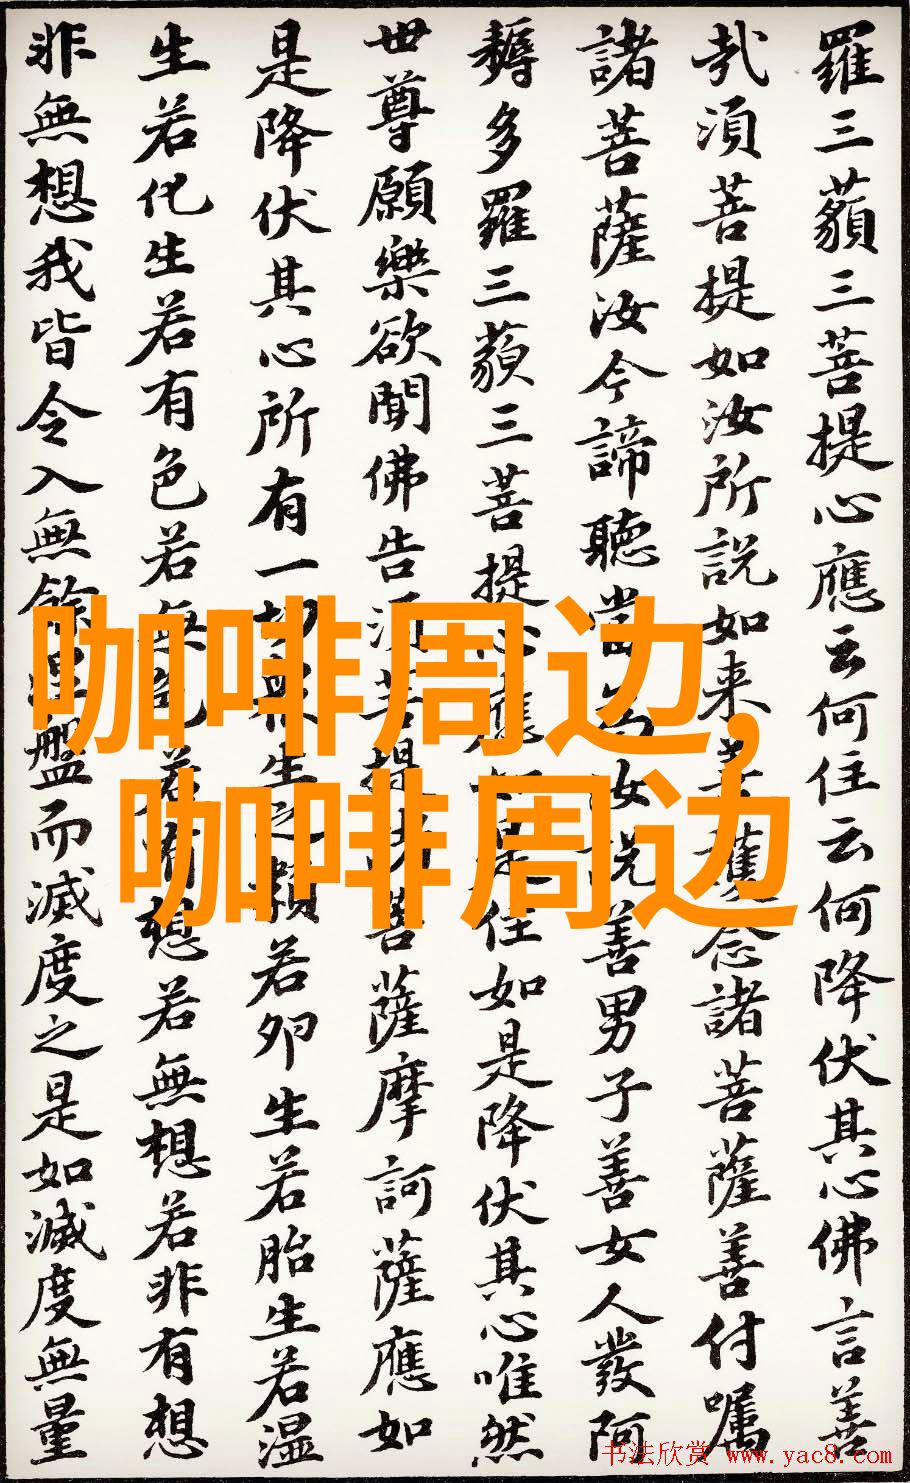 羅三藐三菩提心應云何住云何降伏其心佛言善
哉須菩提如汝所說如来善護念諸菩薩善付囑
諸菩薩汝今諦聽當為汝說善男子善女人發阿
耨多羅三藐三菩提心應如是住如是降伏其心唯然
世尊願樂欲聞佛告須菩提諸菩薩摩訶薩應如
是降伏其心所有一切眾生之類若卵生若胎生若湿
生若化生若有色若無色若有想若無想若非有想
非無想我皆令入無餘涅盤而滅度之是如滅度無量
咖啡周边,
咖啡周边
书法欣赏 www.yac8.com